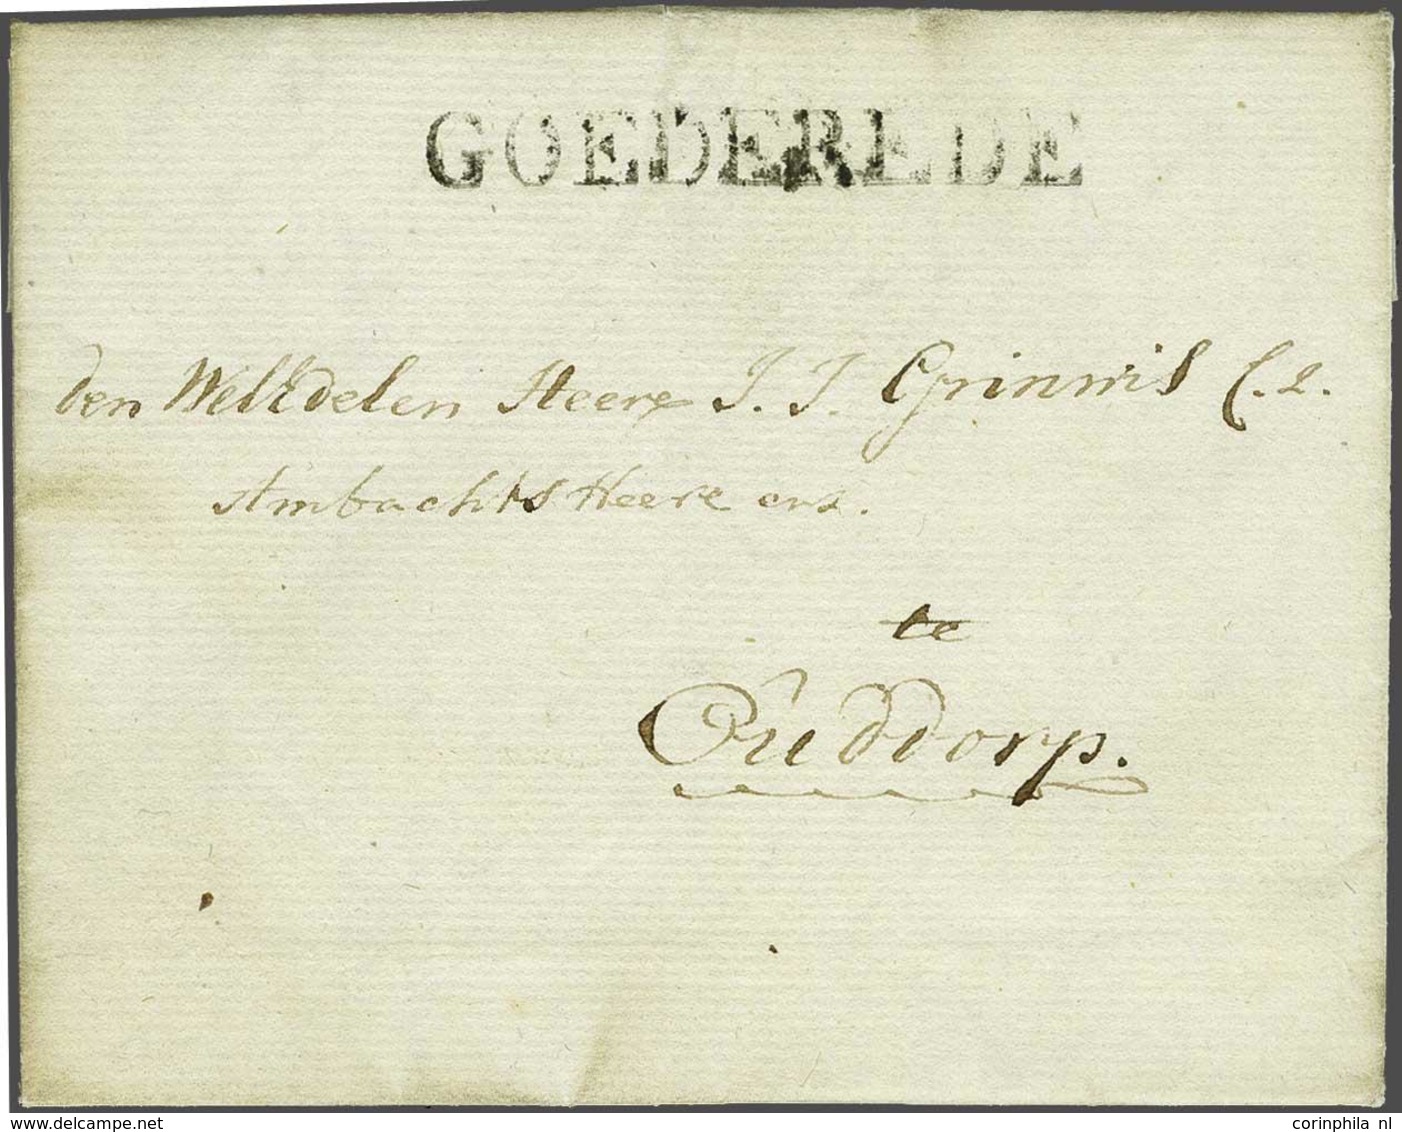 GOEDEREDE
den WelEdelen Heere J. J. Grinwis C. z.
AmbachtsHeere enz.
te
Ouddorp.
www.delcampe.net
corinphila nl